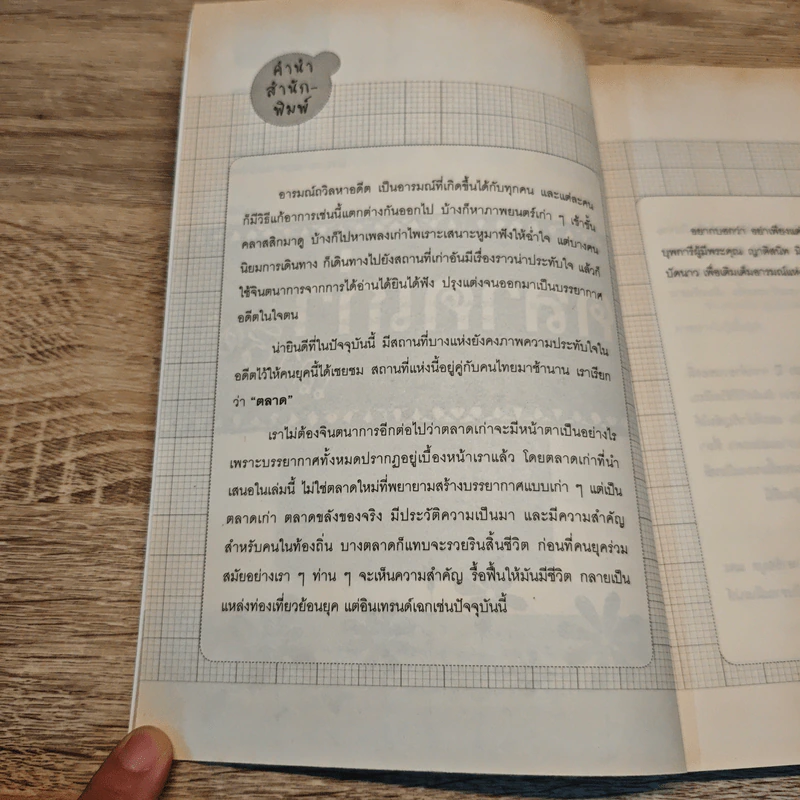 คำนำ
สำนัก-
พิมพ์
อารมณ์ถวิลหาอดีต เป็นอารมณ์ที่เกิดขึ้นได้กับทุกคน และแต่ละคน
ก็มีวิธีแก้อาการเช่นนี้แตกต่างกันออกไป บ้างก็หาภาพยนตร์เก่า ๆ เข้าขั้น
คลาสสิกมาดู บ้างก็ไปหาเพลงเก่าไพเราะเสนาะหูมาฟังให้ฉ่ำใจ แต่บางคน
นิยมการเดินทาง ก็เดินทางไปยังสถานที่เก่าอันมีเรื่องราวน่าประทับใจ แล้วก็
ใช้จินตนาการจากการได้อ่านได้ยินได้ฟัง ปรุงแต่งจนออกมาเป็นบรรยากาศ
อดีตในใจตน
น่ายินดีที่ในปัจจุบันนี้ มีสถานที่บางแห่งยังคงภาพความประทับใจใน
อดีตไว้ให้คนยุคนี้ได้เชยชม สถานที่แห่งนี้อยู่คู่กับคนไทยมาช้านาน เราเรียก
ว่า “ตลาด”
เราไม่ต้องจินตนาการอีกต่อไปว่าตลาดเก่าจะมีหน้าตาเป็นอย่างไร
เพราะบรรยากาศทั้งหมดปรากฏอยู่เบื้องหน้าเราแล้ว โดยตลาดเก่าที่นำ
เสนอในเล่มนี้ ไม่ใช่ตลาดใหม่ที่พยายามสร้างบรรยากาศแบบเก่า ๆ แต่เป็น
ตลาดเก่า ตลาดขลังของจริง มีประวัติความเป็นมา และมีความสำคัญ
สำหรับคนในท้องถิ่น บางตลาดก็แทบจะรวยรินสิ้นชีวิต ก่อนที่คนยุคร่วม
สมัยอย่างเรา ๆ ท่าน ๆ จะเห็นความสำคัญ รื้อฟื้นให้มันมีชีวิต กลายเป็น
แหล่งท่องเที่ยวย้อนยุค แต่อินเทรนด์เฉกเช่นปัจจุบันนี้
อยากบอกว่า อย่าเพียงแต่
บุพการีผู้มีพระคุณ ญาติสนิท
ปัดนาว เพื่อเติมเต็มอารมณ์แห่ง